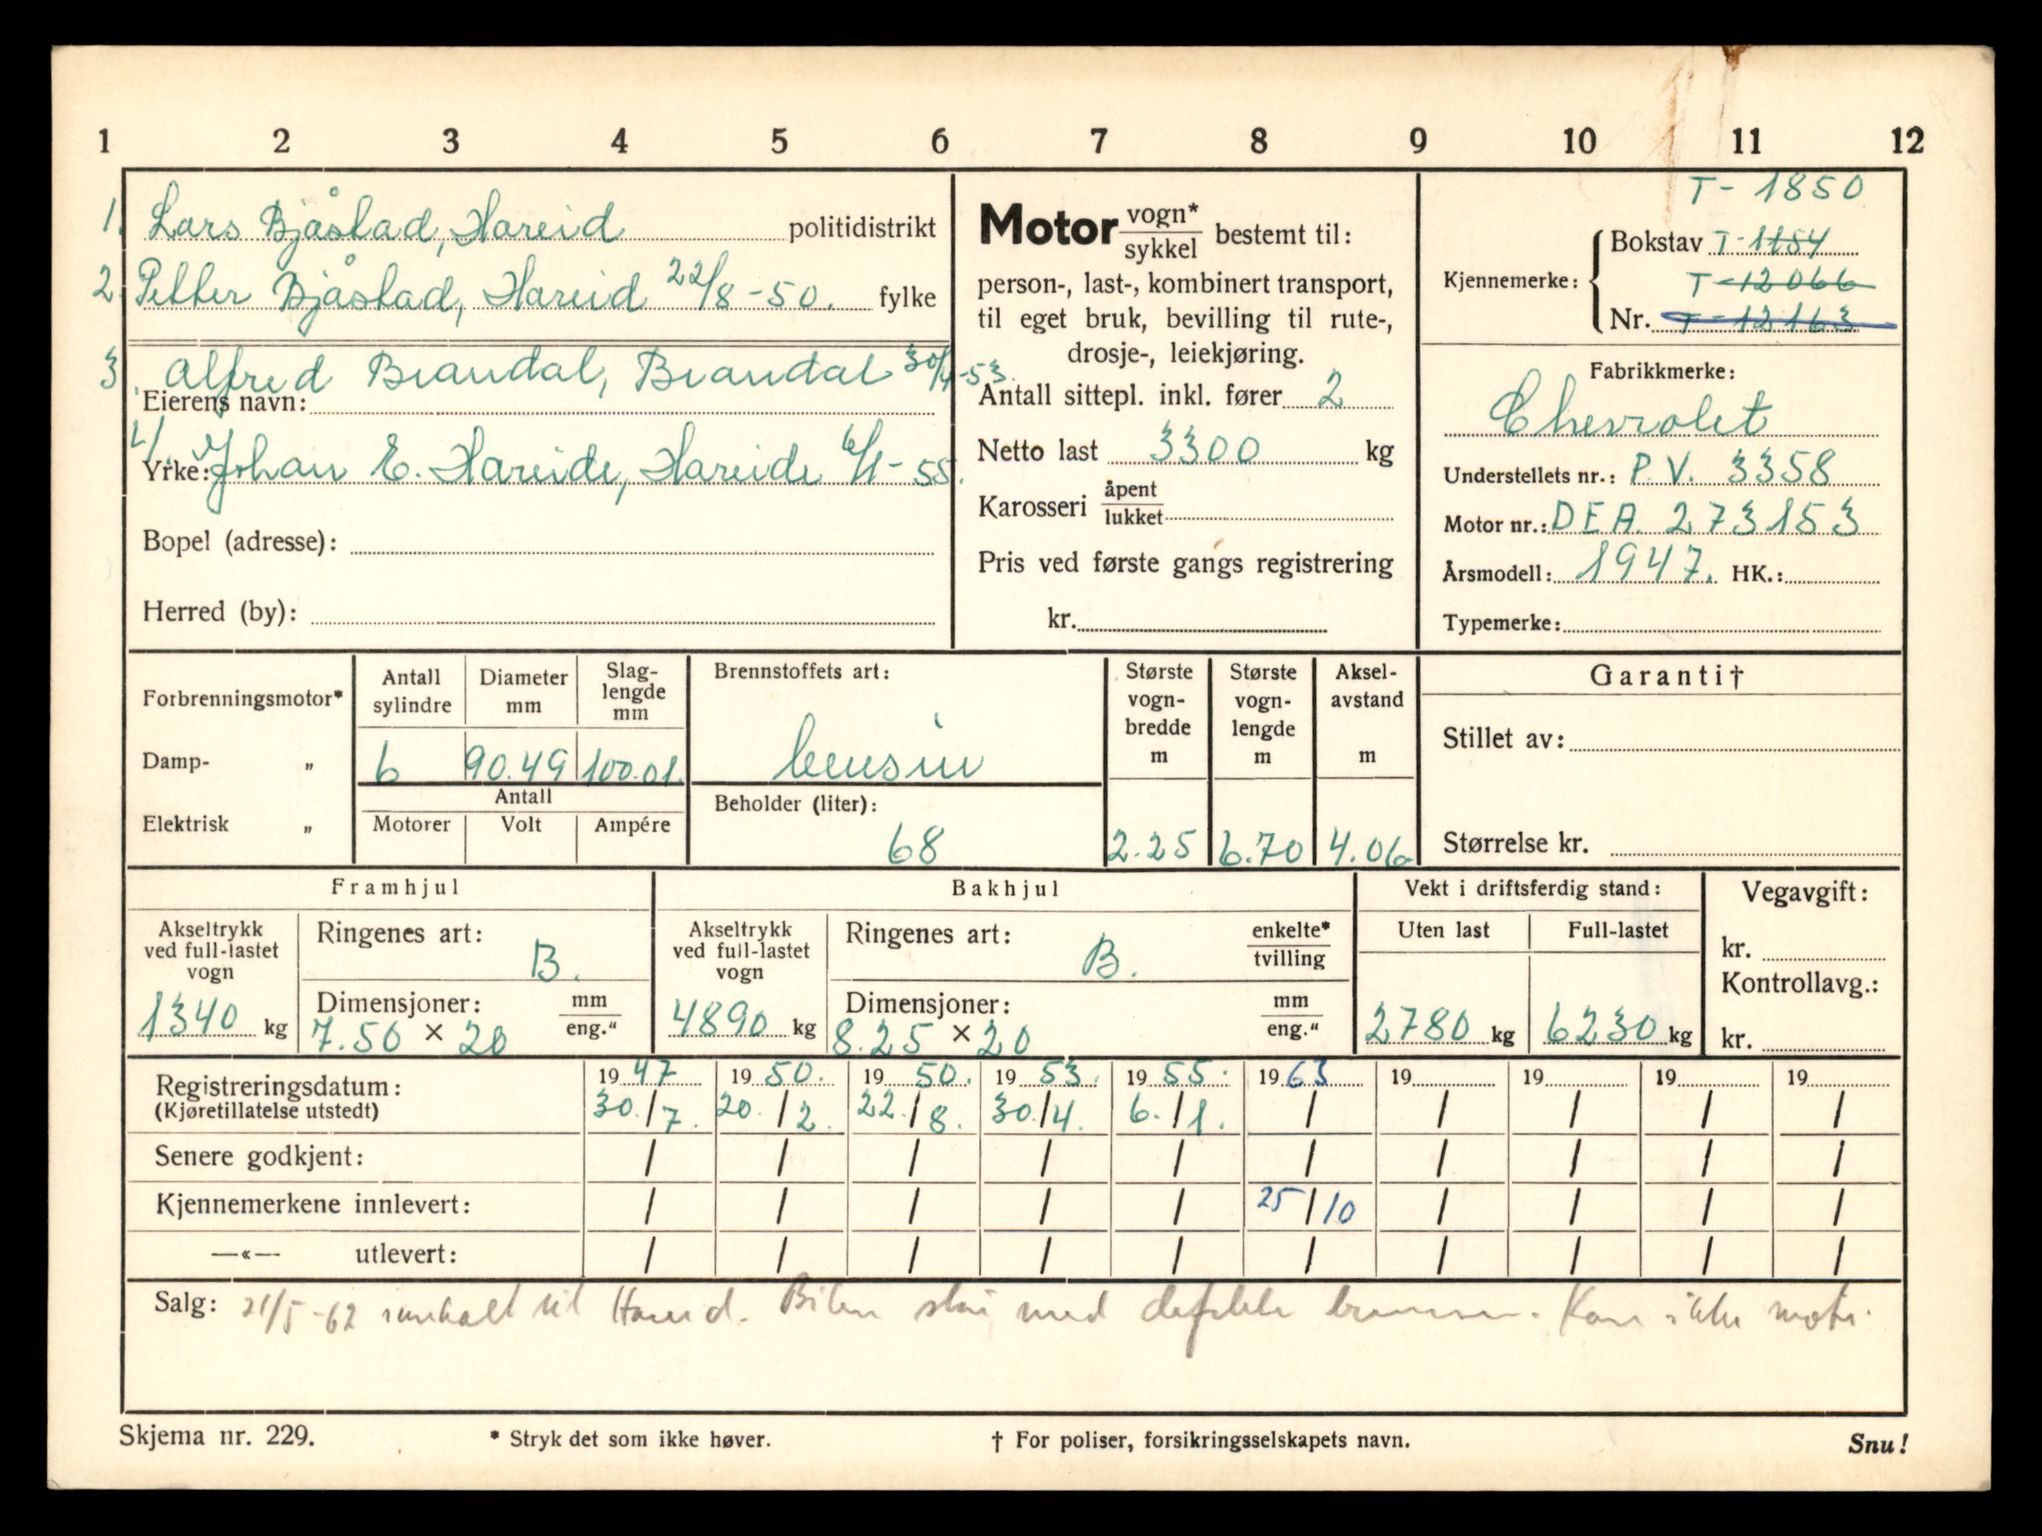 1 2 3 4 5 6 7 8 9 10 11 12
1. Lars Bjåstad, Hareid politidistrikt
2. Petter Bjåstad, Hareid 22/8-50. fylke
3. Alfred Brandal, Brandal 30/4-53.
Eierens navn:
4/. Johan E. Hareide, Hareide 6/1-55.
Yrke:
Bopel (adresse):
Herred (by):
Motor vogn* / sykkel bestemt til:
person-, last-, kombinert transport,
til eget bruk, bevilling til rute-,
drosje-, leiekjøring.
Antall sittepl. inkl. fører 2
Netto last 3300 kg
Karosseri åpent / lukket
Pris ved første gangs registrering
kr.
T-1850
Kjennemerke: Bokstav T-1154
T-12066
Nr. T-12163
Fabrikkmerke:
Chevrolet
Understellets nr.: P.V. 3358
Motor nr.: DEA. 273153
Årsmodell: 1947. HK.:
Typemerke:
Forbrenningsmotor*
Damp- „
Elektrisk „
Antall sylindre
6
Diameter mm
90.49
Slag-lengde mm
100.01.
Antall
Motorer Volt Ampére
Brennstoffets art:
bensin
Beholder (liter):
68
Største vogn-bredde m
2.25
Største vogn-lengde m
6.70
Aksel-avstand m
4.06
Garanti†
Stillet av:
Størrelse kr.
Framhjul
Akseltrykk ved full-lastet vogn
1340 kg
Ringenes art: B.
Dimensjoner: mm / eng."
7.50 × 20
Bakhjul
Akseltrykk ved full-lastet vogn
4890 kg
Ringenes art: B. enkelte* / tvilling
Dimensjoner: mm / eng."
8.25 × 20
Vekt i driftsferdig stand:
Uten last
2780 kg
Full-lastet
6230 kg
Vegavgift:
kr.
Kontrollavg.:
kr.
Registreringsdatum: 1947 1950. 1950. 1953. 1955. 1963 19 19 19 19
(Kjøretillatelse utstedt) 30./7. 20./2. 22./8. 30./4. 6./1. / / / / /
Senere godkjent: / / / / / / / / / /
Kjennemerkene innlevert: / / / / / 25/10 / / / /
—«— utlevert: / / / / / / / / / /
Salg: 21/5-62 til Hareid. Bilen står med defekte bremser. Kan ikke
Skjema nr. 229. * Stryk det som ikke høver. † For poliser, forsikringsselskapets navn. Snu!